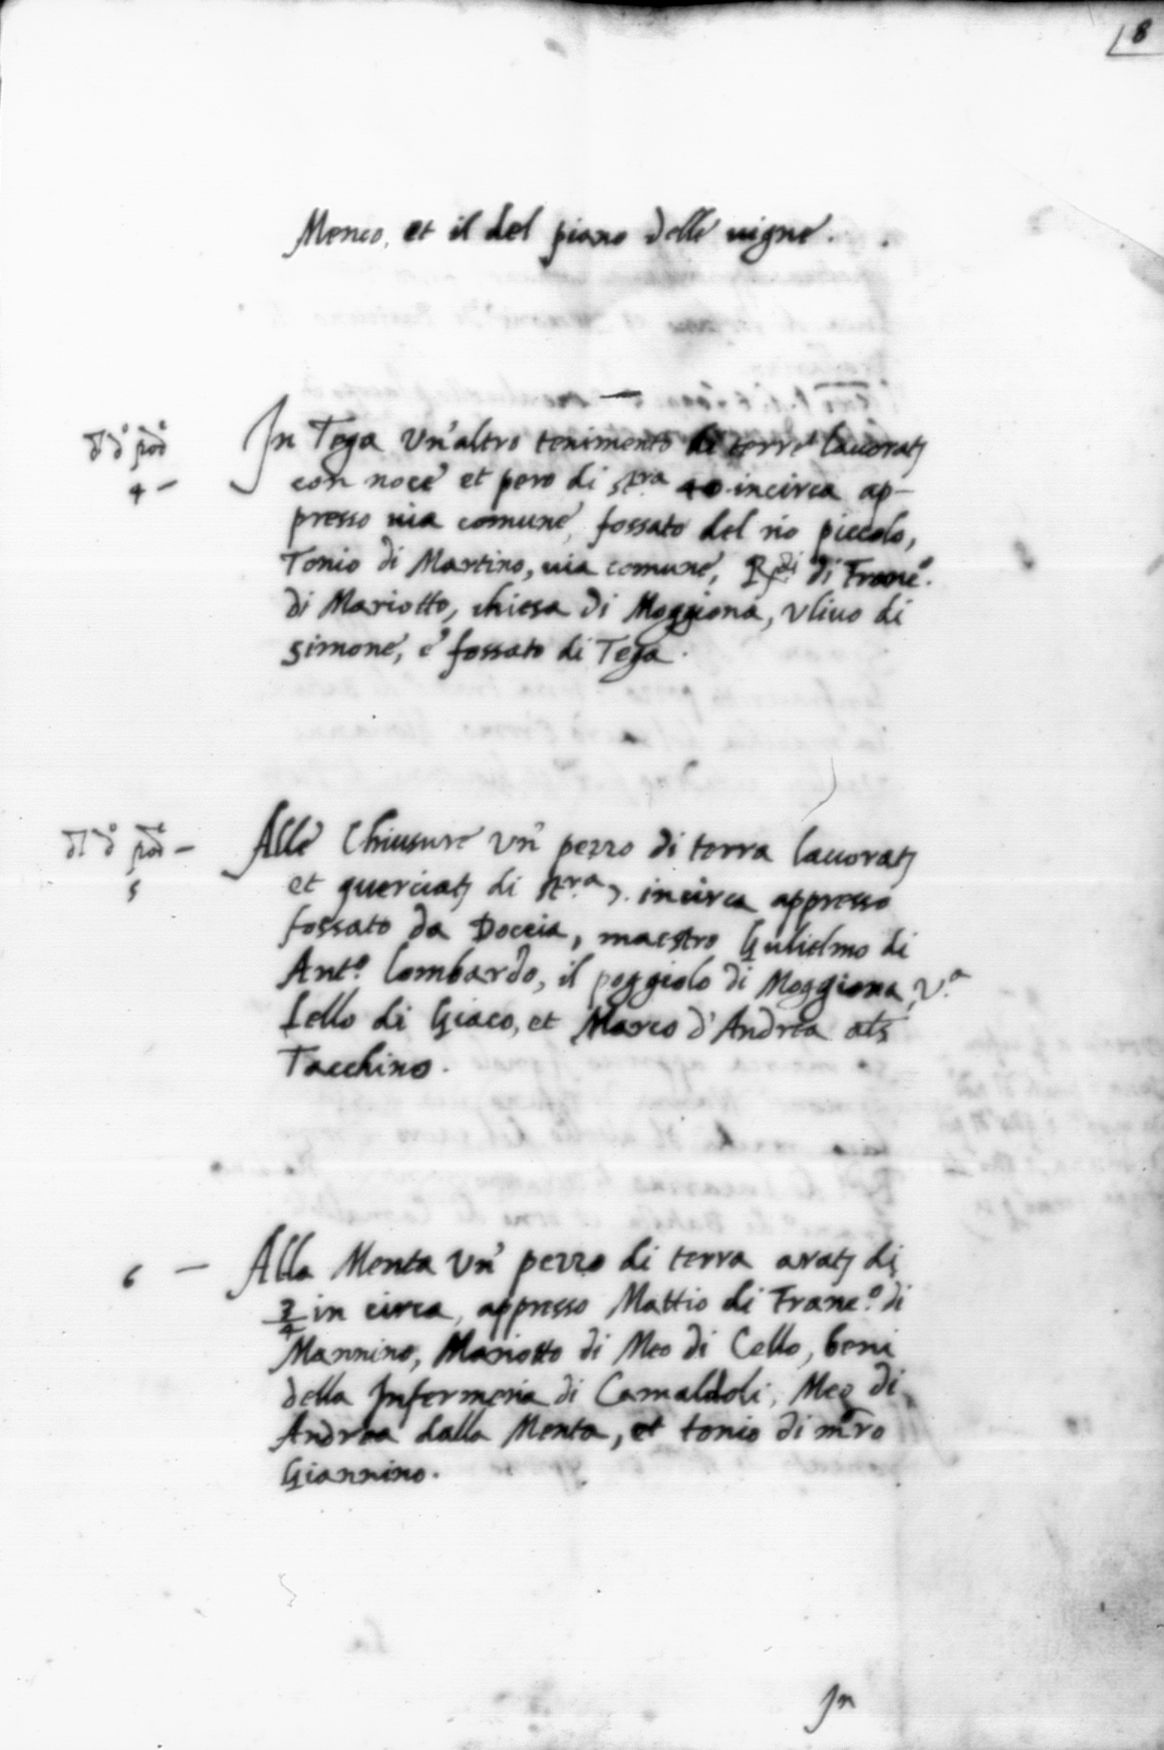 8
Menco, et il del piano delle uigne.
In Tega Vn'altro tenimento di terre lauorat
con noce et pero di st.ra 40 incirca ap-
4 -
presso uia comune, fossato del rio piccolo,
Tonio di Martino, uia comune, di Franc.o
di Mariotto, chiesa di Moggiona, Vliuo di
simone, e fossato di Tega.
Alle Chiusure Vn' pezzo di terra lauorat
5
et querciat di st.ra 7. incirca appresso
fossato da Doccia, maestro Gulielmo di
Ant.o Lombardo, il poggiolo di Moggiona, V.a
Lello di Giaco, et Marco d'Andrea als
Tacchino.
6 - Alla Menta Vn' pezzo di terra arat di
3/4 in circa, appresso Mattio di Franc.o di
Mannino, Mariotto di Meo di Cello, beni
della Infermeria di Camaldoli, Meo di
Andrea dalla Menta, et tonio di m.ro
Giannino.
In